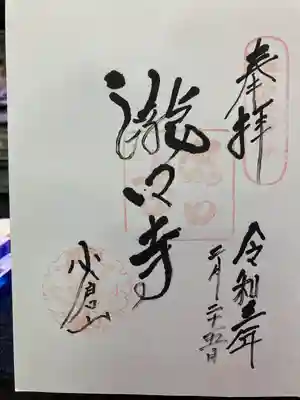 奉拝
令和年
月二十五日
瀧口寺
小倉山